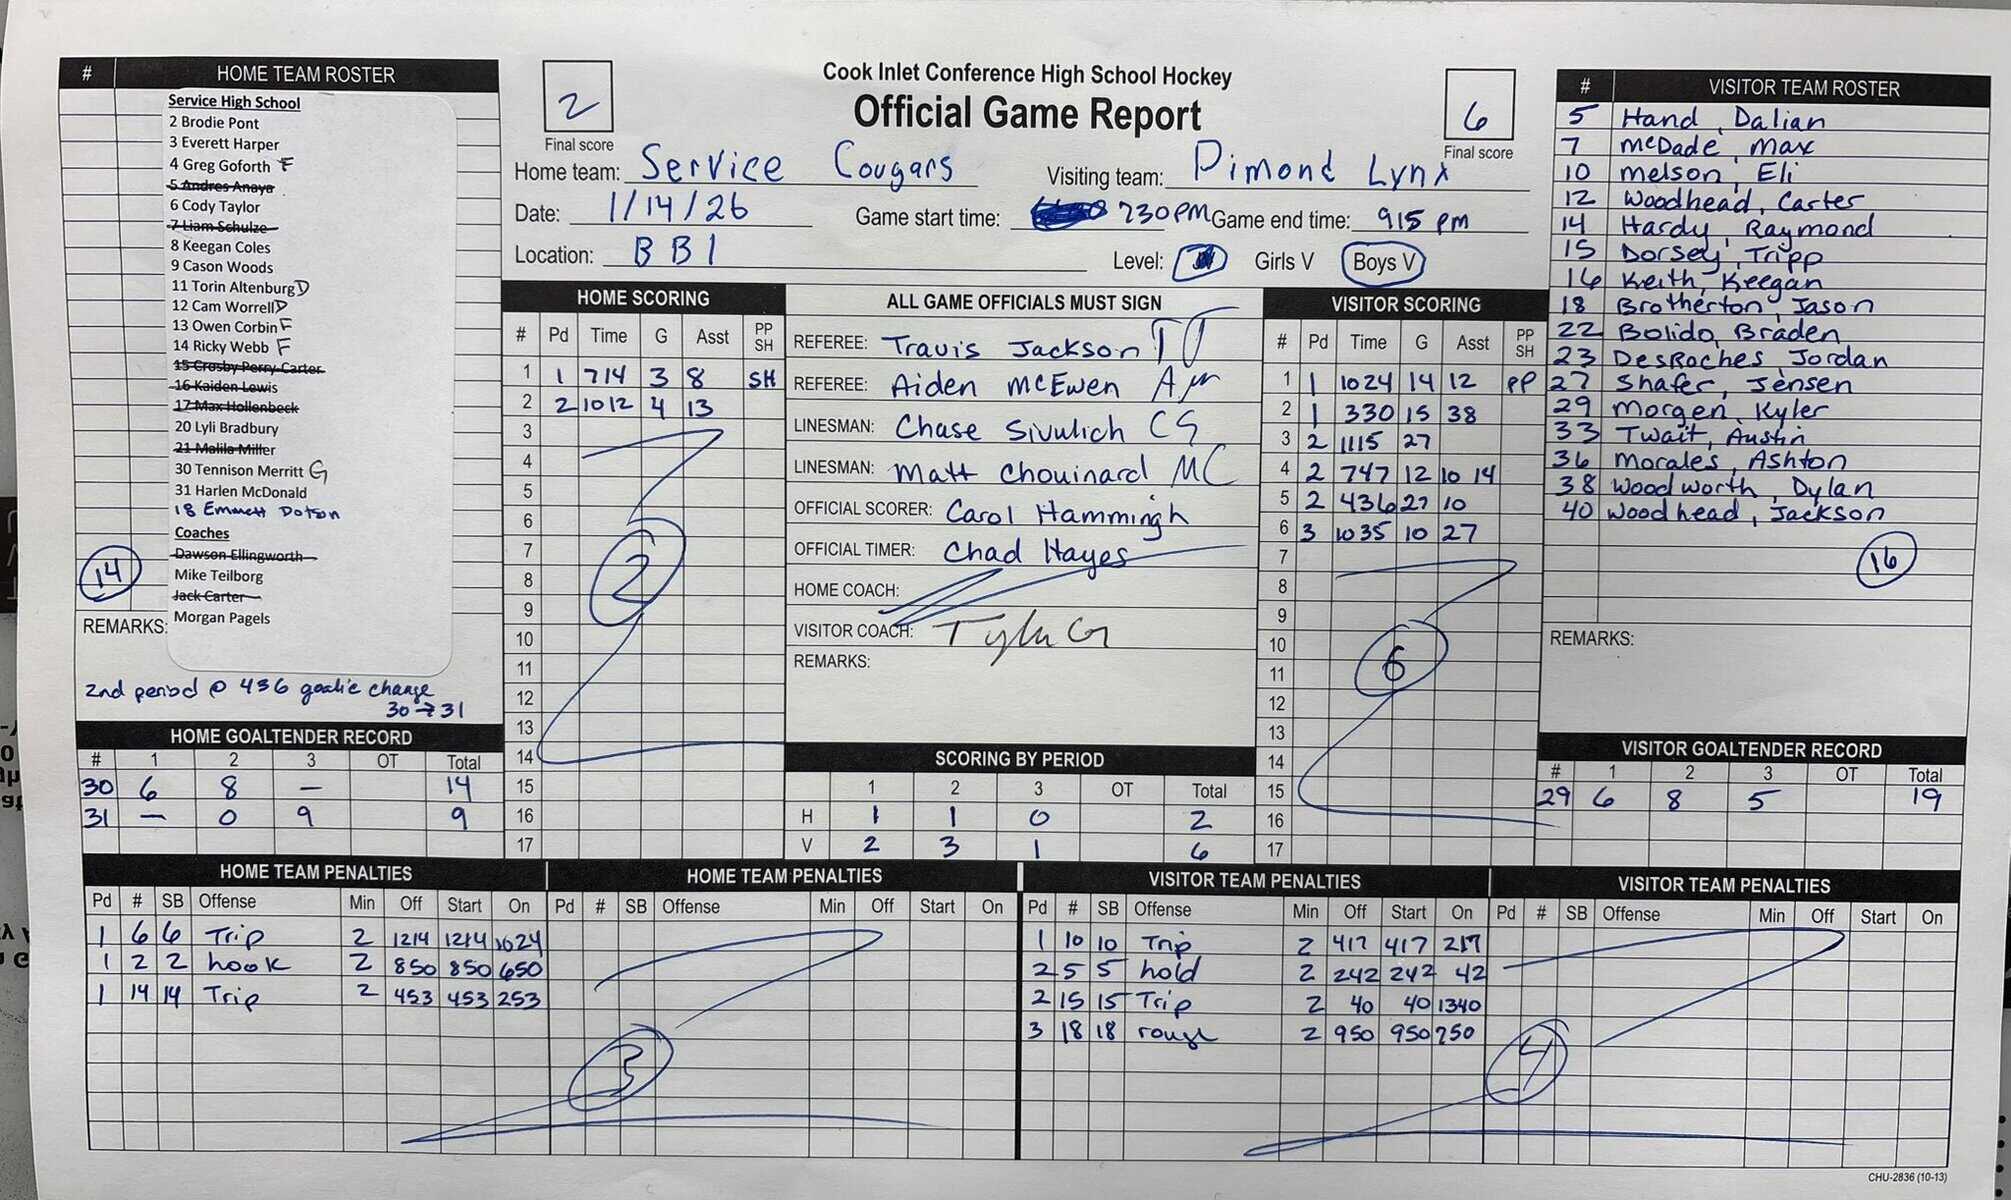 Cook Inlet Conference High School Hockey
Official Game Report
2
Final score
6
Final score
Home team: Service Cougars
Visiting team: Dimond Lynx
Date: 1/14/26
Game start time: 730PM
Game end time: 915 pm
Location: BBI
Level: Girls V Boys V
# HOME TEAM ROSTER
Service High School
2 Brodie Pont
3 Everett Harper
4 Greg Goforth F
5 Andres Anaya
6 Cody Taylor
7 Liam Schulze
8 Keegan Coles
9 Cason Woods
11 Torin Altenburg D
12 Cam Worrell D
13 Owen Corbin F
14 Ricky Webb F
15 Crosby Perry-Carter
16 Kaiden Lewis
17 Max Hollenbeck
20 Lyli Bradbury
21 Malila Miller
30 Tennison Merritt G
31 Harlen McDonald
18 Emmett Dotson
Coaches
Dawson Ellingworth
Mike Teilborg
Jack Carter
Morgan Pagels
14
REMARKS:
2nd period @ 436 goalie change
30→31
HOME SCORING
# Pd Time G Asst PP SH
1 1 714 3 8 SH
2 2 1012 4 13
3
4
5
6
7
8
9
10
11
12
13
14
15
16
17
2
ALL GAME OFFICIALS MUST SIGN
REFEREE: Travis Jackson TJ
REFEREE: Aiden McEwen AM
LINESMAN: Chase Sivulich CS
LINESMAN: Matt Chouinard MC
OFFICIAL SCORER: Carol Hammingh
OFFICIAL TIMER: Chad Hayes
HOME COACH:
VISITOR COACH: Tyler G
REMARKS:
VISITOR SCORING
# Pd Time G Asst PP SH
1 1 1024 14 12 PP
2 1 330 15 38
3 2 1115 27
4 2 747 12 10 14
5 2 436 27 10
6 3 1035 10 27
7
8
9
10
11
12
13
14
15
16
17
6
# VISITOR TEAM ROSTER
5 Hand, Dalian
7 McDade, Max
10 Melson, Eli
12 Woodhead, Carter
14 Hardy, Raymond
15 Dorsey, Tripp
16 Keith, Keegan
18 Brotherton, Jason
22 Bolido, Braden
23 DesRoches, Jordan
27 Shafer, Jensen
29 Morgen, Kyler
33 Twait, Austin
36 Morales, Ashton
38 Woodworth, Dylan
40 Woodhead, Jackson
16
REMARKS:
HOME GOALTENDER RECORD
# 1 2 3 OT Total
30 6 8 — 14
31 — 0 9 9
SCORING BY PERIOD
1 2 3 OT Total
H 1 1 0 2
V 2 3 1 6
VISITOR GOALTENDER RECORD
# 1 2 3 OT Total
29 6 8 5 19
HOME TEAM PENALTIES
Pd # SB Offense Min Off Start On
1 6 6 Trip 2 1214 1214 1024
1 2 2 hook 2 850 850 650
1 14 14 Trip 2 453 453 253
HOME TEAM PENALTIES
Pd # SB Offense Min Off Start On
3
VISITOR TEAM PENALTIES
Pd # SB Offense Min Off Start On
1 10 10 Trip 2 417 417 217
2 5 5 hold 2 242 242 42
2 15 15 Trip 2 40 40 1340
3 18 18 rough 2 950 950 750
VISITOR TEAM PENALTIES
Pd # SB Offense Min Off Start On
4
CHU-2836 (10-13)